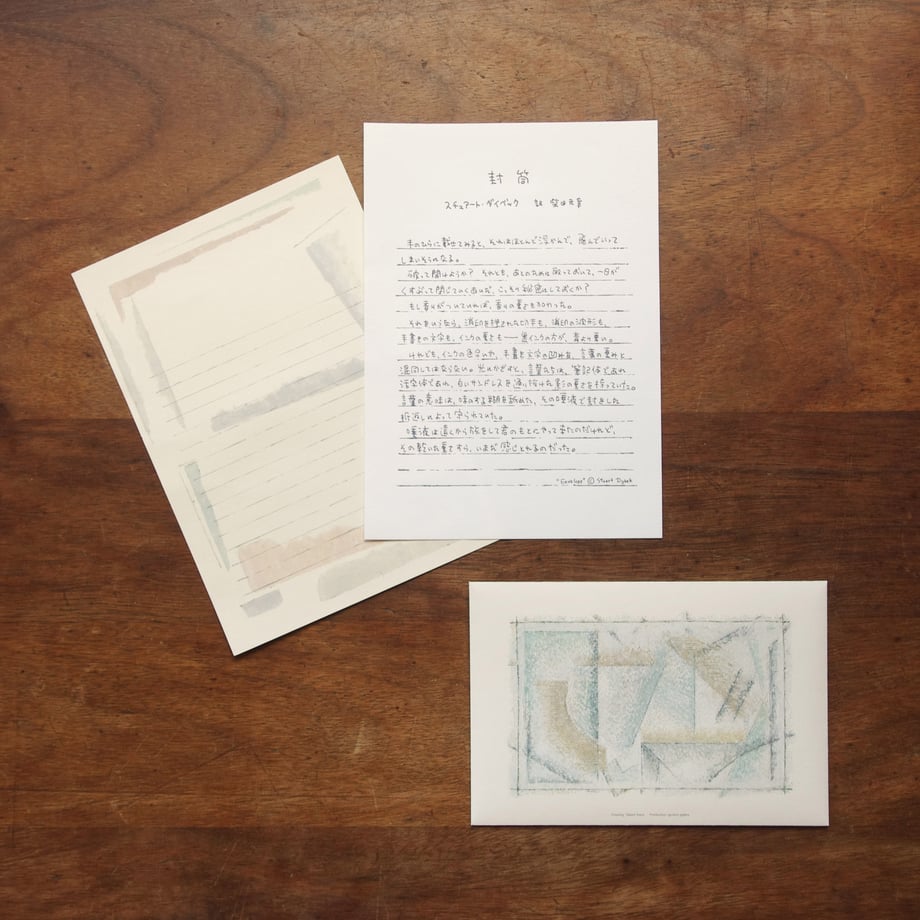 封筒
スチュアート・ダイベック 訳 柴田元幸
手のひらに載せてみると、それはほとんど浮かんで、飛んでいって
しまいそうになる。
破って開けようか? それとも、あとのために取っておいて、一日が
くすぶって閉じていくあいだ、こっそり秘密にしておくか?
もし香りがついていれば、香りの重さも加わった。
それをいうなら、消印を押された切手も、消印の波形も、
手書きの文字も、インクの重さも——黒インクの方が、青より重い。
けれども、インクの色合いや、手書き文字の凹みを、言葉の重みと
混同してはならない。光にかざすと、言葉たちは、筆記体であれ
活字体であれ、白いサンドレスを通り抜ける影の重さを持っていた。
言葉の意味は、味のする糊を舐めた、その唾液で封をした
折返しによって守られていた。
唾液は遠くから旅をして君のもとにやって来たのだけれど、
その乾いた重ですら、いまだ感じとれるのだった。
"Envelope" © Stuart Dybek